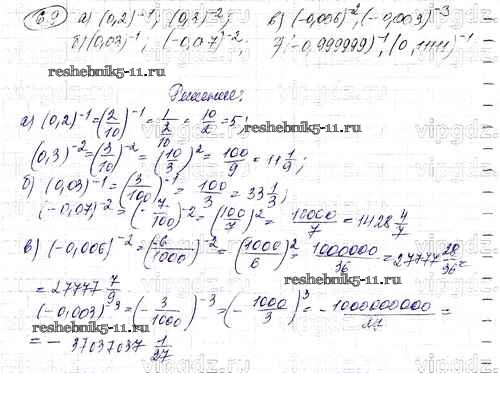 6.9 а) (0,2)^-1; (0,3)^-2; в) (-0,006)^-2, (-0,003)^-3
б) (0,03)^-1; (-0,07)^-2; г) (-0,999999)^-1, (0,1111)^-1
reshebnik5-11.ru
Решение:
а) (0,2)^-1 = (2/10)^-1 = 1/(2/10) = 10/2 = 5;
(0,3)^-2 = (3/10)^-2 = (10/3)^2 = 100/9 = 11 1/9;
б) (0,03)^-1 = (3/100)^-1 = 100/3 = 33 1/3;
(-0,07)^-2 = (-7/100)^-2 = (100/7)^2 = 10000/7 = 1428 4/7
в) (-0,006)^-2 = (-6/1000)^-2 = (1000/6)^2 = 1000000/36 = 27777 28/36 =
= 27777 7/9
(-0,003)^-3 = (-3/1000)^-3 = (-1000/3)^3 = -1000000000/27 =
= -37037037 1/27
reshebnik5-11.ru
vipgdz.ru